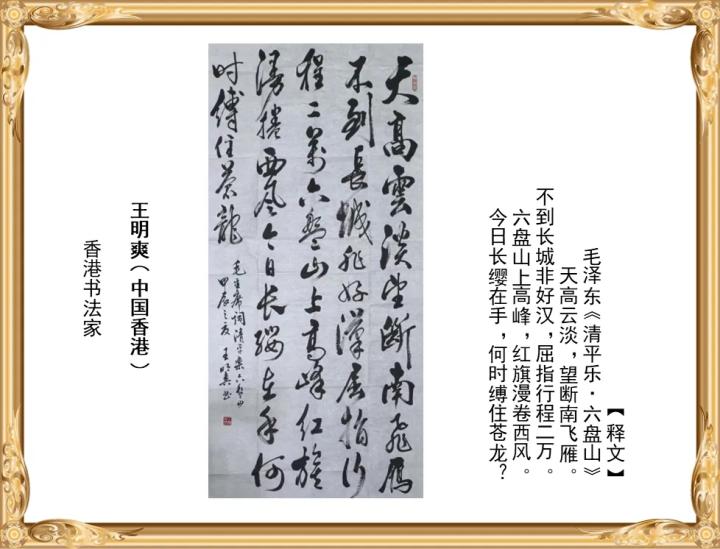 【释文】
毛泽东《清平乐·六盘山》
天高云淡，望断南飞雁。
不到长城非好汉，屈指行程二万。
六盘山上高峰，红旗漫卷西风。
今日长缨在手，何时缚住苍龙？
天高雲淡望断南飛雁
不到長城非好漢屈指行
程二萬六盤山上高峰红旗
漫捲西風今日长缨在手何
时缚住苍龍
毛主席词清平樂六盘山
甲辰之夏王明爽书
王明爽（中国香港）
香港书法家